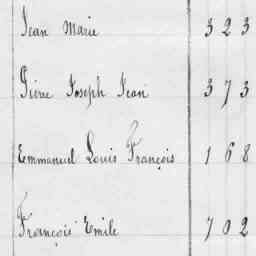 Jean Marie 323
Pierre Joseph Jean 373
Emmanuel Louis François 168
François Emile 702